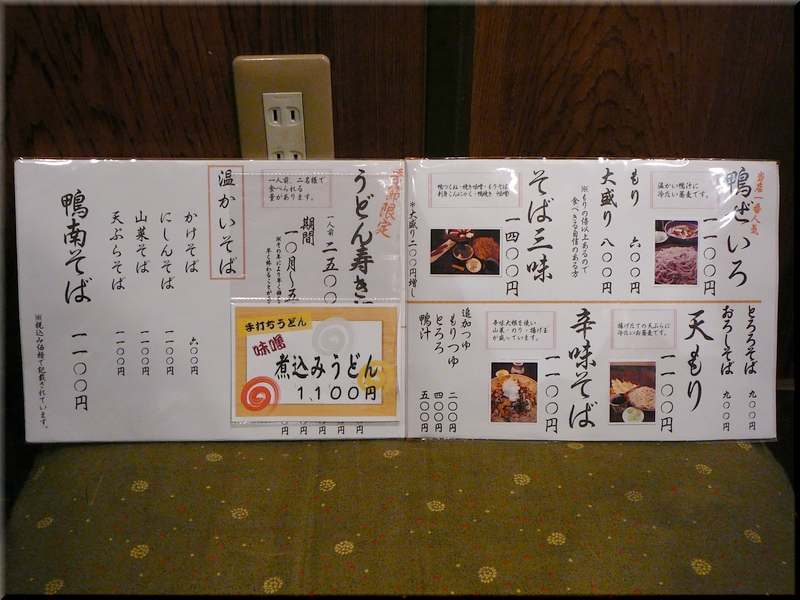 当店一番人気
鴨せいろ
一一〇〇円
温かい鴨汁に
冷たい蕎麦です。
もり 六〇〇円
大盛り 八〇〇円
※もりの倍以上あるので
食べきる自信のある方
そば三味
一四〇〇円
鴨つくね・焼き味噌・もりそば
刺身こんにゃく・鴨焼き 味噌
*大盛り二〇〇円増し
とろろそば 九〇〇円
おろしそば 九〇〇円
天もり
一一〇〇円
揚げたての天ぷらに
冷たいお蕎麦です。
辛味そば
一一〇〇円
辛味大根を使い
山菜・のり・揚げ玉
が盛っています。
追加つゆ
もりつゆ 二〇〇円
とろろ 四〇〇円
鴨汁 五〇〇円
季節限定
うどん寿き
一人前 二五〇〇
一人前、二名様で
食べられる
量があります。
期間
一〇月〜五
手打ちうどん
味噌
煮込みうどん
1,100円
円
円
円
円
円
温かいそば
かけそば 六〇〇円
にしんそば 一一〇〇円
山菜そば 一一〇〇円
天ぷらそば 一一〇〇円
鴨南そば 一一〇〇円
※税込み価格で記載されています。